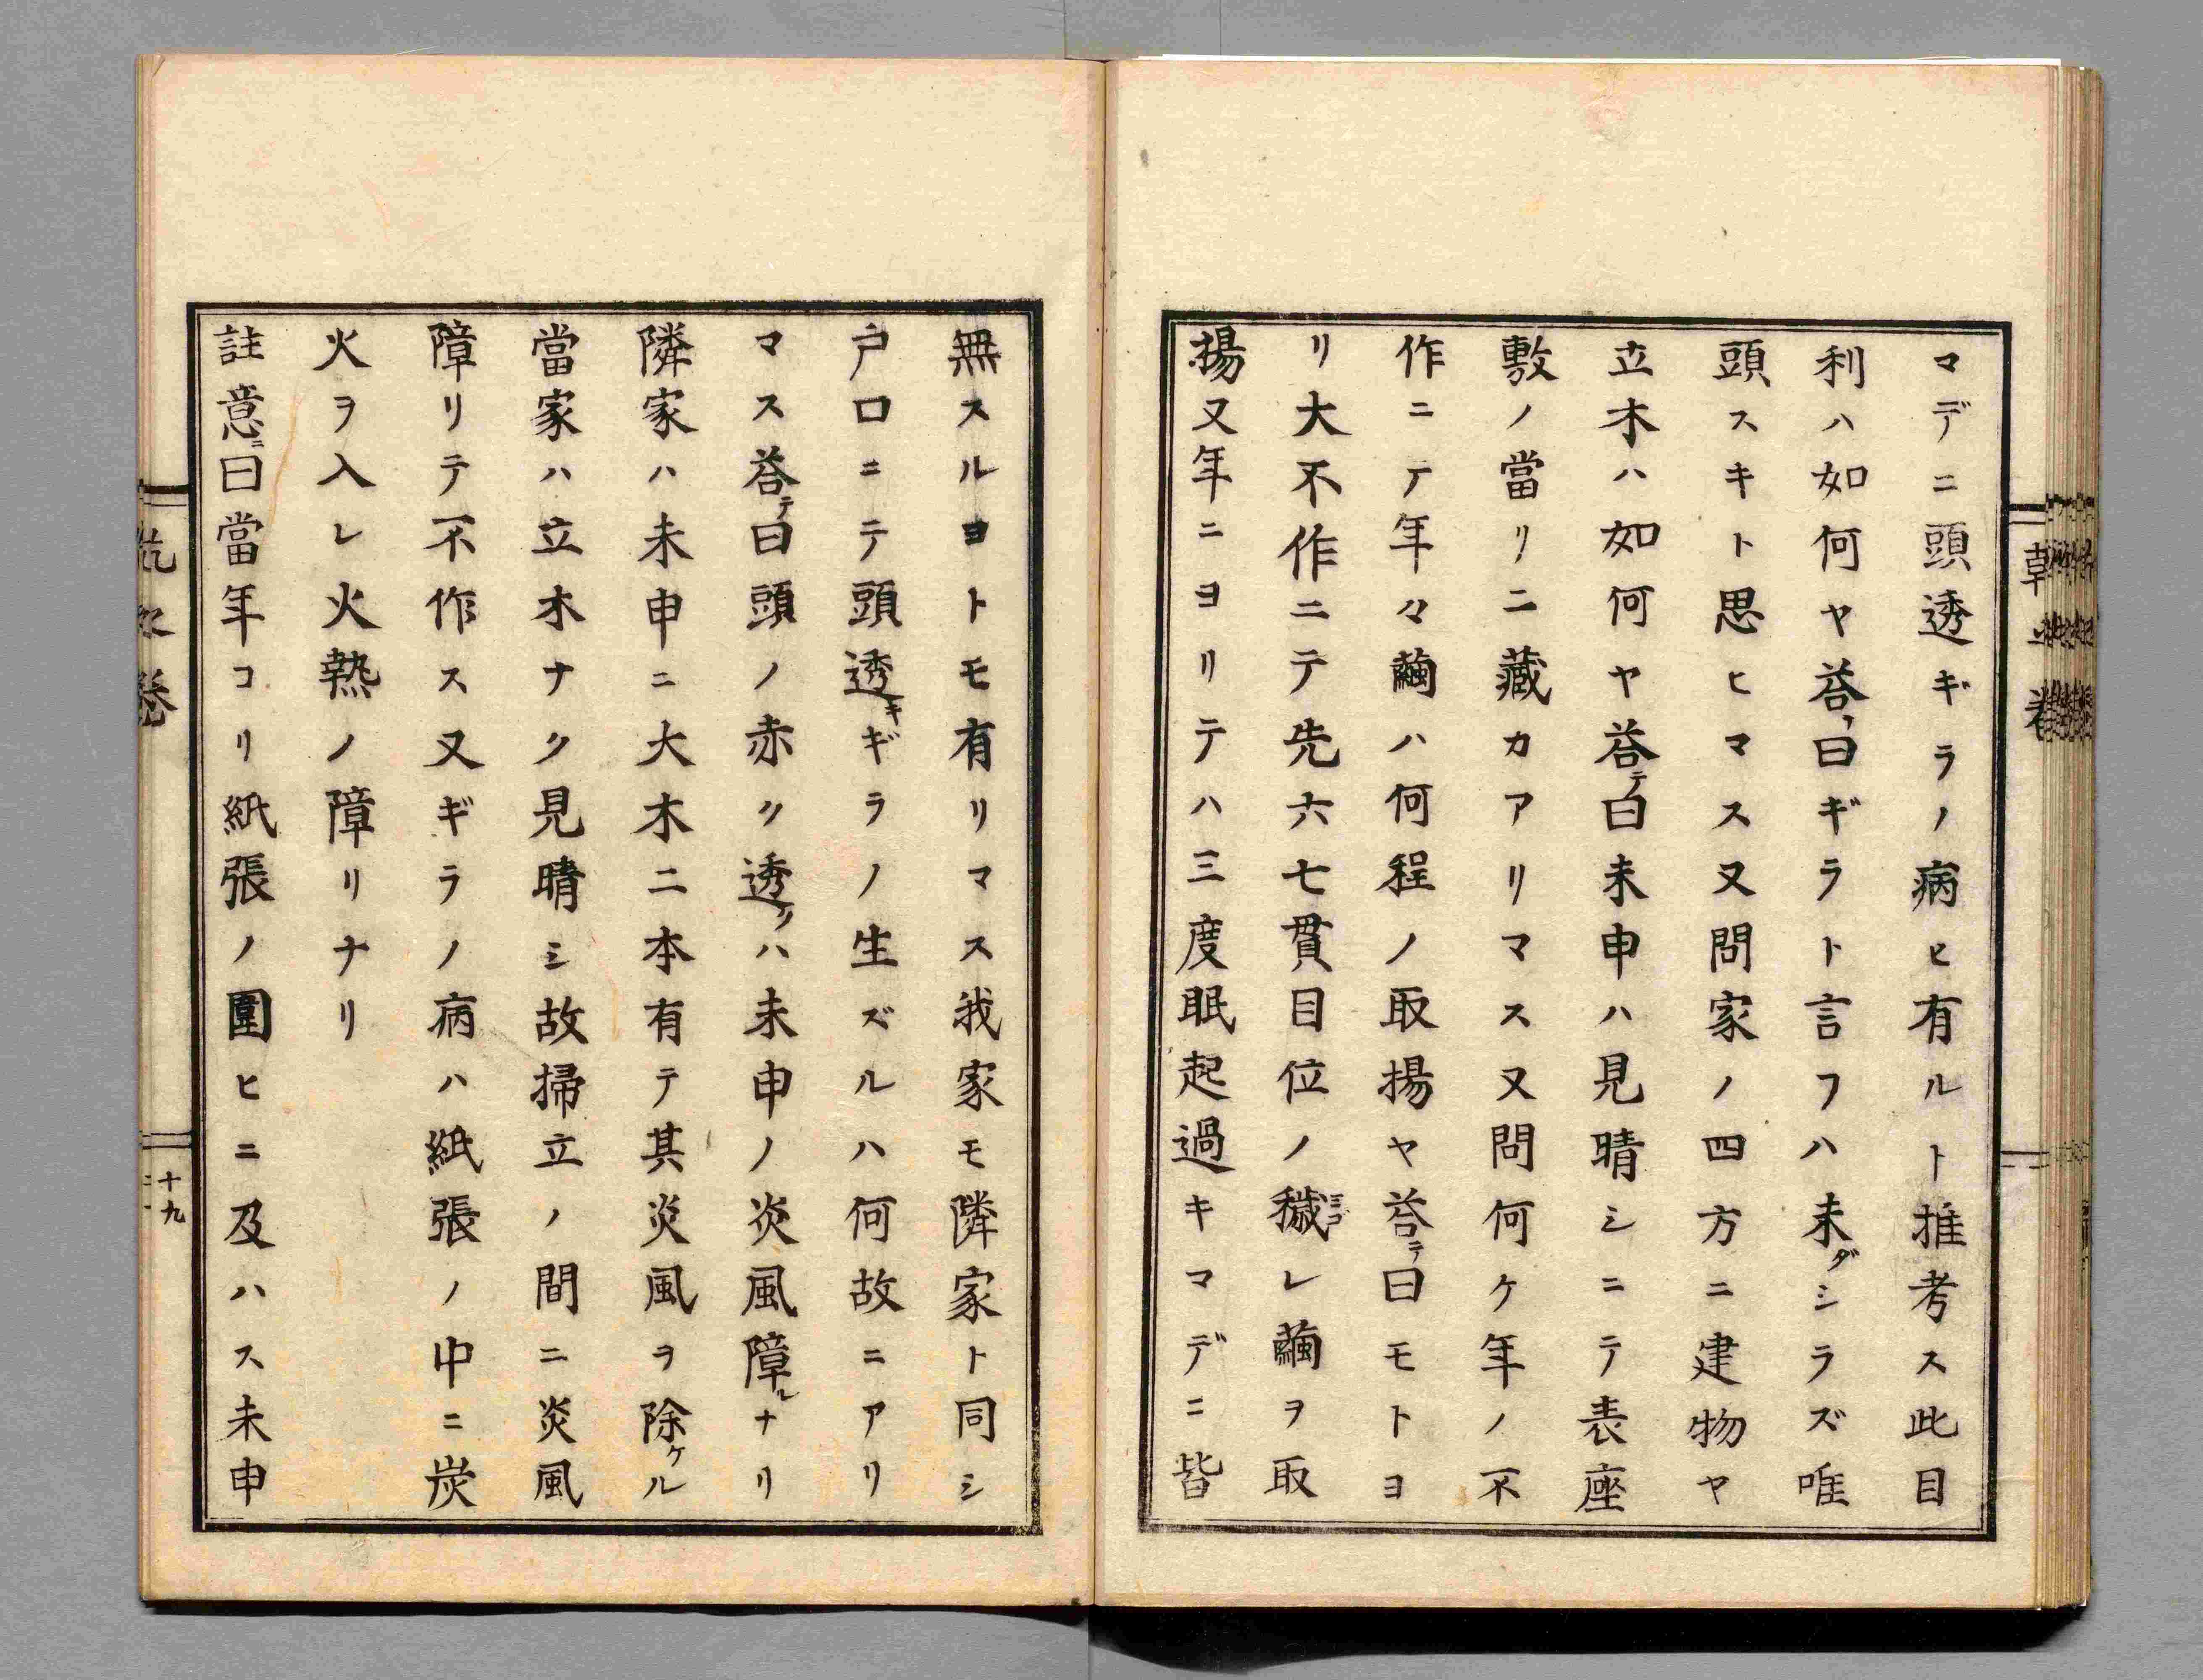 マデニ頭透ギラノ病ヒ有ルト推考ス此目
利ハ如何ヤ荅テ曰ギラト言フハ未ダシラズ唯
頭スキト思ヒマス又問家ノ四方ニ建物ヤ
立木ハ如何ヤ荅テ曰未申ハ見晴シニテ表座
敷ノ當リニ藏カアリマス又問何ケ年ノ不
作ニテ年々繭ハ何程ノ取揚ヤ荅テ曰モトヨ
リ大不作ニテ先六七貫目位ノ穢レ繭ヲ取
揚又年ニヨリテハ三度眠起過キマデニ皆
無スルヿトモ有リマス我家モ隣家ト同シ
戸口ニテ頭透キギラノ生ズルハ何故ニアリ
マス荅テ曰頭ノ赤ク透クハ未申ノ炎風障ルナリ
隣家ハ未申ニ大木二本有テ其炎風ヲ除ケル
當家ハ立木ナク見晴シ故掃立ノ間ニ炎風
障リテ不作ス又ギラノ病ハ紙張ノ中ニ炭
火ヲ入レ火熱ノ障リナリ
註意ニ曰當年コリ紙張ノ圍ヒニ及ハス未申
十九